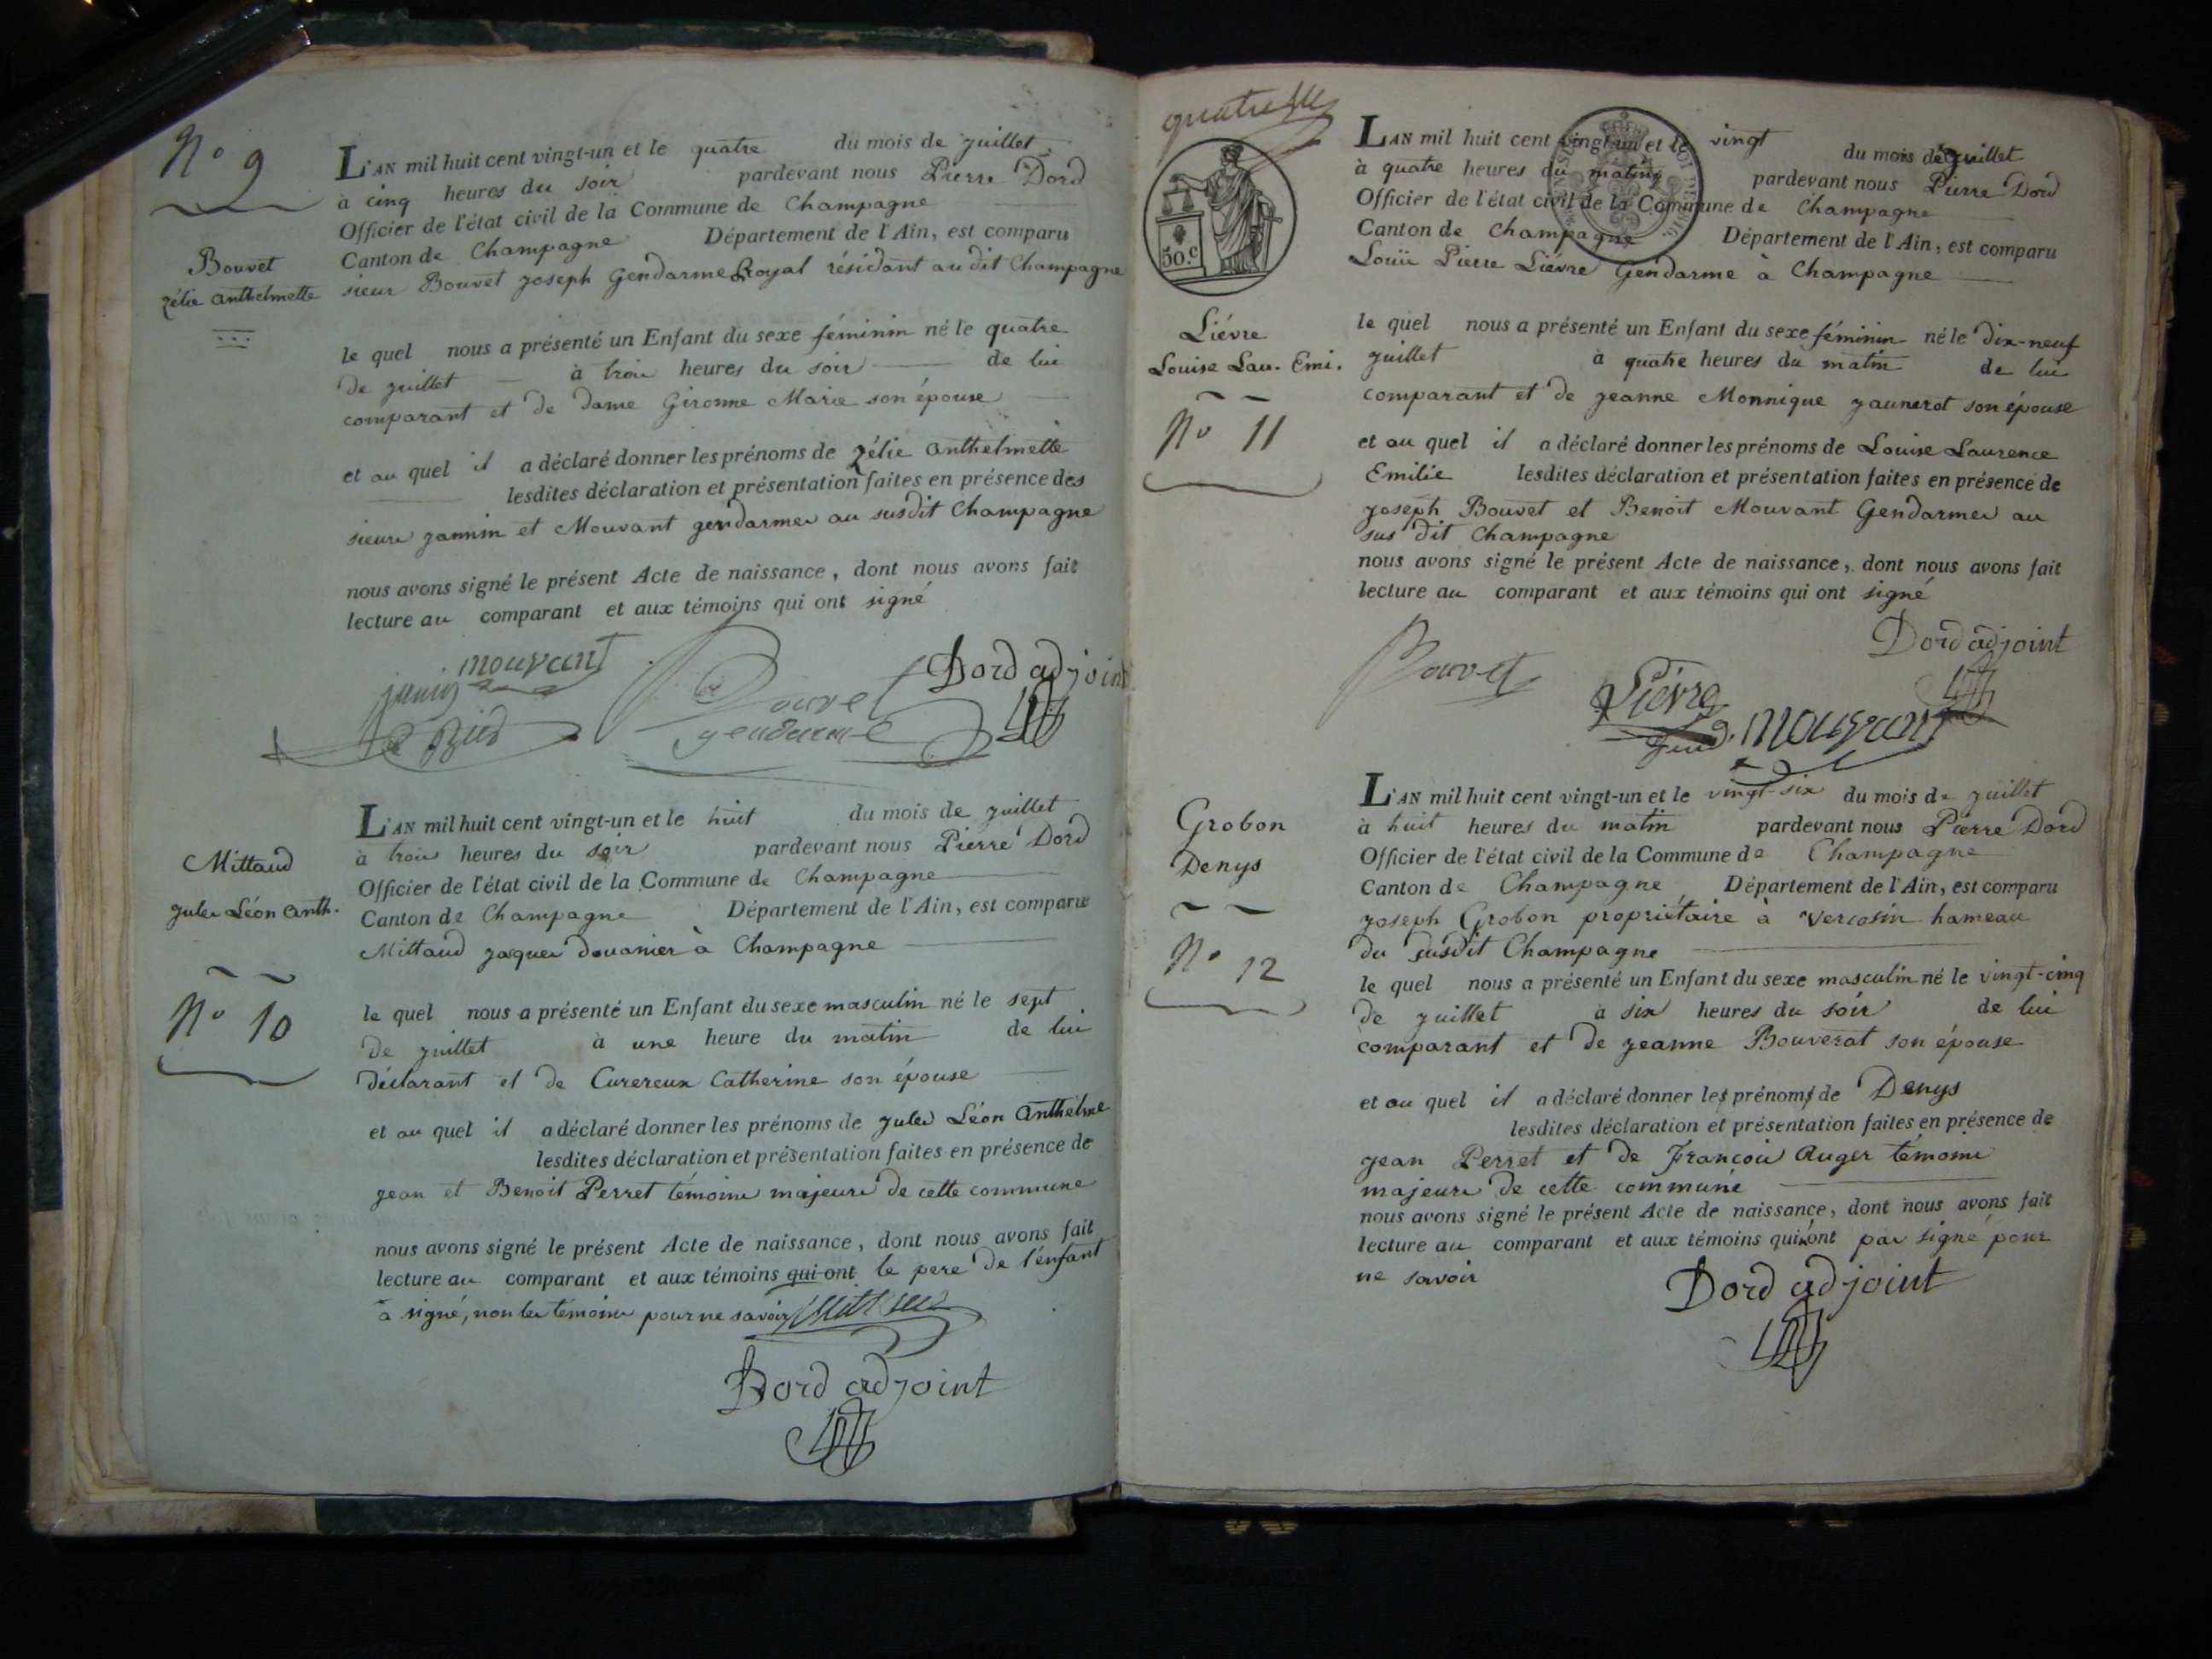 N° 9
Bouvet
zélie anthelmette
L'AN mil huit cent vingt-un et le quatre du mois de juillet
à cinq heures du soir pardevant nous Pierre Dord
Officier de l'état civil de la Commune de Champagne
Canton de Champagne Département de l'Ain, est comparu
sieur Bouvet joseph Gendarme Royal résidant au dit Champagne
le quel nous a présenté un Enfant du sexe féminin né le quatre
de juillet à trois heures du soir de lui
comparant et de dame Gironne Marie son épouse
et au quel il a déclaré donner les prénoms de zélie anthelmette
lesdites déclaration et présentation faites en présence des
sieurs jannin et Mouvant gendarmes au susdit Champagne
nous avons signé le présent Acte de naissance, dont nous avons fait
lecture au comparant et aux témoins qui ont signé
mouvant
Bouvet
gendarme
Dord adjoint
Mittaud
jules Léon anth.
N° 10
L'AN mil huit cent vingt-un et le huit du mois de juillet
à trois heures du soir pardevant nous Pierre Dord
Officier de l'état civil de la Commune de Champagne
Canton de Champagne Département de l'Ain, est comparu
Mittaud jaques douanier à Champagne
le quel nous a présenté un Enfant du sexe masculin né le sept
de juillet à une heure du matin de lui
déclarant et de Curereux Catherine son épouse
et au quel il a déclaré donner les prénoms de jules Léon anthelme
lesdites déclaration et présentation faites en présence de
jean et Benoit Perret témoins majeurs de cette commune
nous avons signé le présent Acte de naissance, dont nous avons fait
lecture au comparant et aux témoins qui ont le pere de l'énfant
à signé, non les témoins pour ne savoir
Dord adjoint
quatre
50.c
Liévre
Louise Lau. Emi.
N° 11
L'AN mil huit cent vingt-un et le vingt du mois de juillet
à quatre heures du matin pardevant nous Pierre Dord
Officier de l'état civil de la Commune de Champagne
Canton de Champagne Département de l'Ain, est comparu
Louis Pierre Liévre Gendarme à Champagne
le quel nous a présenté un Enfant du sexe féminin né le dix-neuf
juillet à quatre heures du matin de lui
comparant et de jeanne Monnique jaunerot son épouse
et au quel il a déclaré donner les prénoms de Louise Laurence
Emilie lesdites déclaration et présentation faites en présence de
joseph Bouvet et Benoit Mouvant Gendarmes au
sus dit Champagne
nous avons signé le présent Acte de naissance, dont nous avons fait
lecture au comparant et aux témoins qui ont signé
Dord adjoint
Bouvet
Liévre
mouvant
Grobon
Denys
N° 12
L'AN mil huit cent vingt-un et le vingt-six du mois de juillet
à huit heures du matin pardevant nous Pierre Dord
Officier de l'état civil de la Commune de Champagne
Canton de Champagne Département de l'Ain, est comparu
joseph Grobon propriétaire à Vercosin hameau
du susdit Champagne
le quel nous a présenté un Enfant du sexe masculin né le vingt-cinq
de juillet à six heures du soir de lui
comparant et de jeanne Bouverat son épouse
et au quel il a déclaré donner les prénoms de Denys
lesdites déclaration et présentation faites en présence de
jean Perret et de François Auger témoins
majeurs de cette commune
nous avons signé le présent Acte de naissance, dont nous avons fait
lecture au comparant et aux témoins qui ont pas signé pour
ne savoir
Dord adjoint